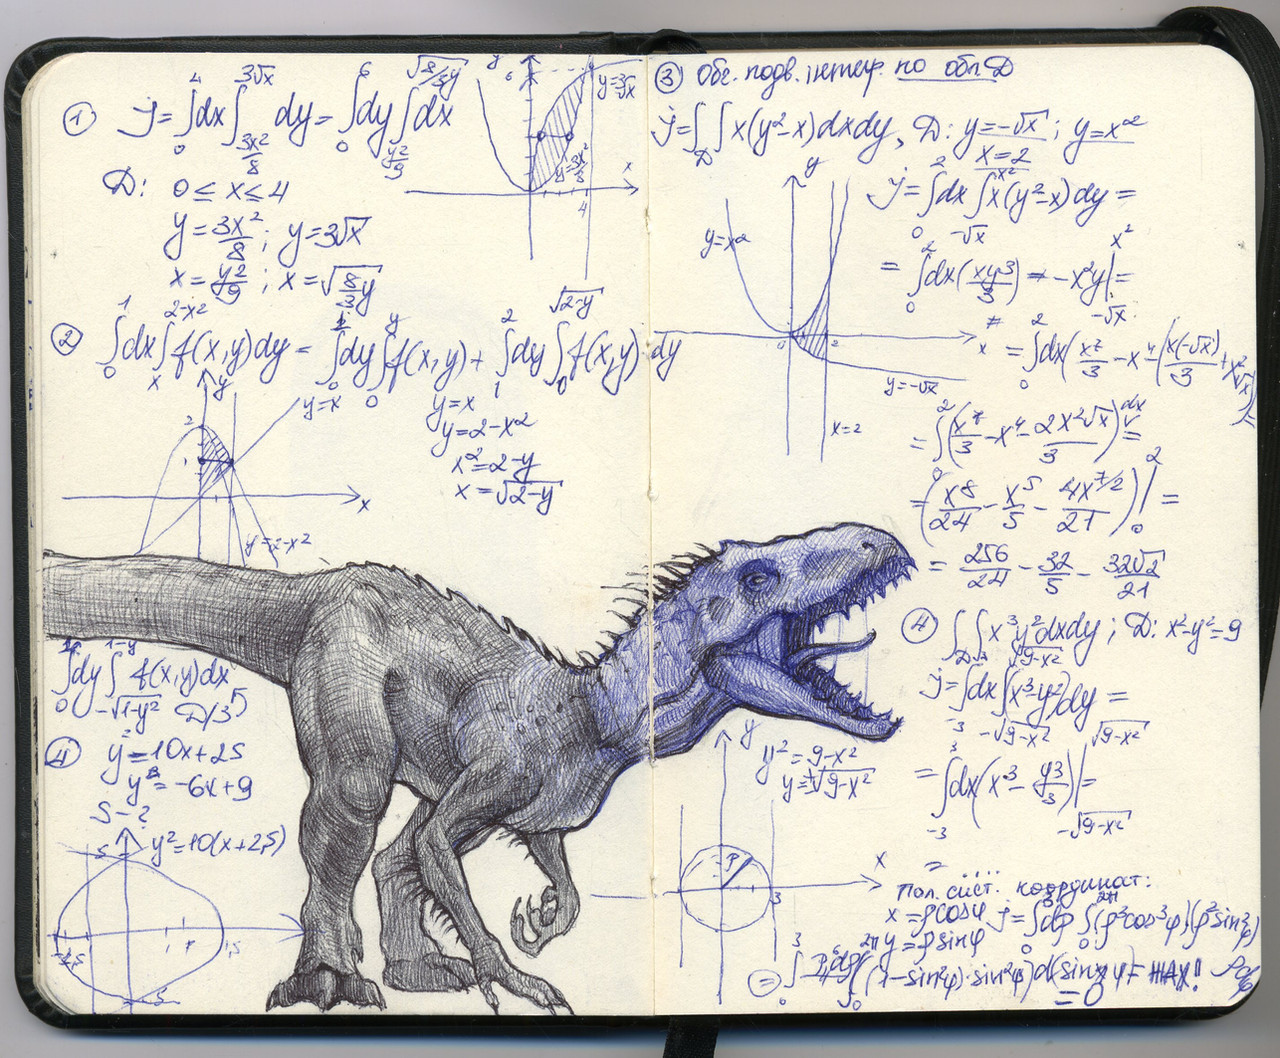 ① J = ∫₀⁴ dx ∫_{3x²/8}^{3√x} dy = ∫₀⁶ dy ∫_{y²/9}^{√(8/3 y)} dx
D: 0 ≤ x ≤ 4
y = 3x²/8 ; y = 3√x
x = y²/9 ; x = √(8/3 y)
y
6
y=3√x
y=3x²/8
x
4
② ∫₀¹ dx ∫_x^{2-x²} f(x,y)dy = ∫₀¹ dy ∫₀^y f(x,y) + ∫₁² dy ∫₀^{√(2-y)} f(x,y) dy
y=x
y=2-x²
x²=2-y
x=√(2-y)
y
2
1
y=x
x
y=2-x²
∫₀ dy ∫_{-√(1-y²)}^{1-y} f(x,y)dx
D/З
④ y²=10x+25
y²=-6x+9
S-?
5
y²=10(x+2,5)
③ по обл D
J = ∫∫_D x(y²-x)dxdy, D: y=-√x ; y=x²
x=2
J = ∫₀² dx ∫_{-√x}^{x²} x(y²-x)dy =
= ∫₀² dx (xy³/3 - x²y) |_{-√x}^{x²} =
y
y=x²
0
2
x
y=-√x
x=2
= ∫₀² (x⁷/3 - x⁴ - 2x²√x/3) dx =
= (x⁸/24 - x⁵/5 - 4x^{7/2}/21) |₀² =
= 256/24 - 32/5 - 32√2/21
④ ∫∫_D x³y²dxdy ; D: x²-y²=9
J = ∫_{-3}^{3} dx ∫_{-√(9-x²)}^{√(9-x²)} (x³-y²)dy =
= ∫_{-3}^{3} dx (x³ - y³/3) |_{-√(9-x²)}^{√(9-x²)} =
y
y²=9-x²
y=±√(9-x²)
ρ
3
x
= ....
Пол. сист. координат:
x=ρcosφ J = ∫₀³ dρ ∫₀^{2π} (ρ³cos³φ)(ρ²sin²φ)
y=ρsinφ
(1-sin²φ)·sin²φ) d(sinφ) = ЖАХ!
= 0